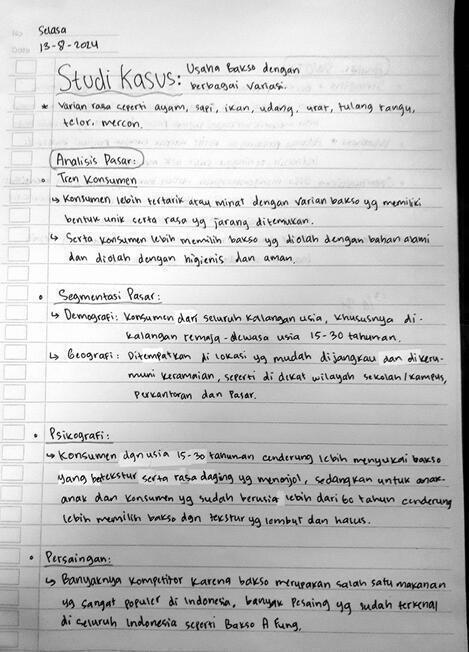 Selasa
13-8-2024
Studi Kasus: Usaha Bakso dengan
berbagai variasi.
* Varian rasa ceperti ayam, sapi, ikan, udang, urat, tulang rangu,
telor, mercon.
Analisis Pasar:
• Tren Konsumen
↳ Konsumen lebih tertarik atau minat dengan varian bakso yg memiliki
bentuk unik serta rasa yg jarang ditemukan.
↳ Serta konsumen lebih memilih bakso yg diolah dengan bahan alami
dan diolah dengan higienis dan aman.
• Segmentasi Pasar:
↳ Demografi: Konsumen dari seluruh kalangan usia, khususnya di-
kalangan remaja-dewasa usia 15-30 tahunan.
↳ Geografi: Ditempatkan di lokasi yg mudah dijangkau dan dikeru-
muni keramaian, seperti di dekat wilayah sekolah/kampus,
perkantoran dan Pasar.
• Psikografi:
↳ Konsumen dgn usia 15-30 tahunan cenderung lebih menyukai bakso
yang betekstur serta rasa daging yg menonjol, sedangkan untuk anak-
anak dan konsumen yg sudah berusia lebih dari 60 tahun cenderung
lebih memilih bakso dgn tekstur yg lembut dan halus.
• Persaingan:
↳ Banyaknya kompetitor karena bakso merupakan salah satu makanan
yg sangat populer di Indonesia, banyak pesaing yg sudah terkenal
di seluruh Indonesia seperti Bakso A Fung.